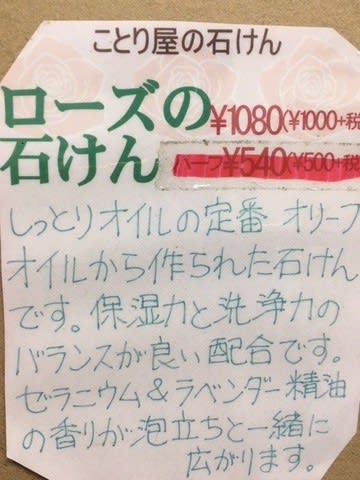 ことり屋の石けん
ローズの ¥1080(¥1000+税
石けん ハーフ¥540(¥500+税
しっとりオイルの定番 オリーブ
オイルから作られた石けん
です。保湿力と洗浄力の
バランスが良い配合です。
ゼラニウム&ラベンダー精油
の香りが泡立ちと一緒に
広がります。